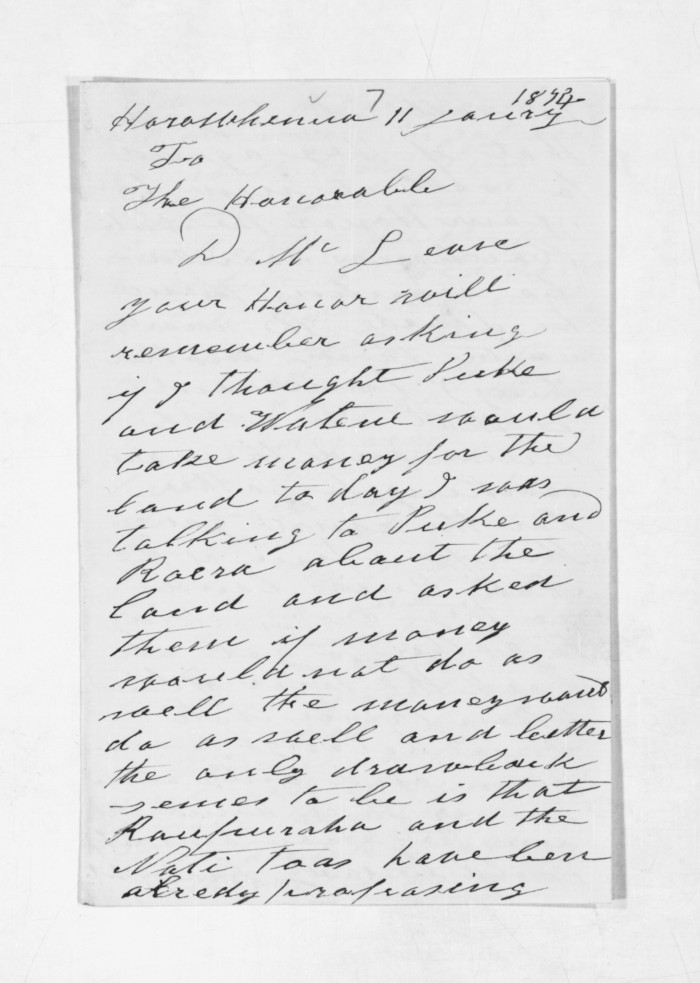 7 1874
Horowhenua 11 Janury
To
The Honorable
D Mc Leane
your Honor will
remember asking
if I thought Puke
and Watene would
take money for the
land to day I was
talking to Puke and
Raera about the
land and asked
them if money
would not do as
well the money would
do as well and better
the only drawback
semes to be is that
Raupuraha and the
Nati toas have ben
alredy proposing